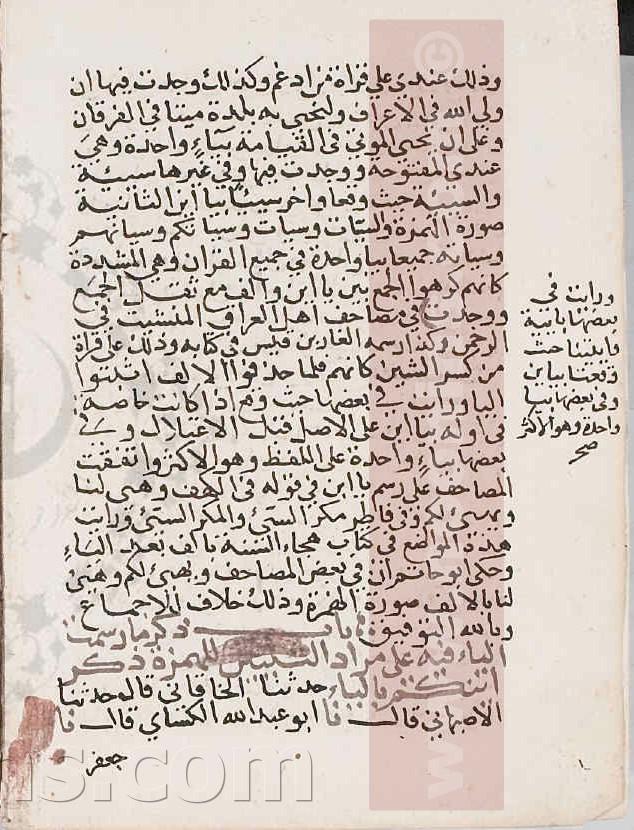 وذلك عندي علي قراة من ادغم وكذلك وجدت فيها ان
ولي الله في الاعراف ولنحيي به بلدة ميتا في الفرقان
وعلي ان يحيي الموتي في القيامة بياء واحدة وهي
عندي المفتوحة ووجدت فيها وفي غيرها سيئة
والسيئة حيث وقعا واخر سيئا بيا اين الثانية
صورة الهمزة والسيات وسيات وسياتكم وسياتهم
وسياته جميعا بيا واحدة في جميع القران وهي المشددة
كانهم كرهوا الجمع بين يا اين والف مع ثقل الجمع
ووجدت في مصاحف اهل العراق المنشيت في
الرحمن وكذا رسمه الغاز بن قيس في كتابه وذلك علي قراة
من كسر الشين كانهم فلما حذفوا الالف اثبتوا
اليا ورايت في بعضها حيث وقع اذا كانت خاصة
في اوله بيا اين علي الاصل قبل الاعتلال وفي
بعضها بياء واحدة علي اللفظ وهو الاكثر واتفقت
المصاحف علي رسم يا اين في قوله في الكهف وهيي لنا
ويهيئ لكم وفي فاطر مكر السيئ والمكر السيئ ورايت
هذه المواضع في كتاب هجاء السنة بالف بعد الياء
وحكي ابو حاتم ان في بعض المصاحف ويهيئ لكم وهيئ
لنا بالالف صورة الهمزة وذلك خلاف للاجماع
وبالله التوفيق باب ذكر ما رسمت
الياء فيه علي مراد التليين للهمزة ذكر
ائنكم بالياء حدثنا الخاقاني قال حدثنا
الاصبهاني قال نا ابو عبد الله الكسائي قال نا
جعفر
ورايت في
بعضها باية
وباياتنا حيث
وقعتا بيا اين
وفي بعضها بيا
واحدة وهو الاكثر
صح
is.com